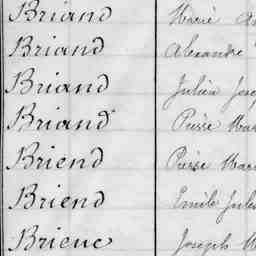 Briand Marie
Briand Alexandre
Briand Julien
Briand Pierre
Briend Pierre
Briend Emile Jules
Brienc Joseph